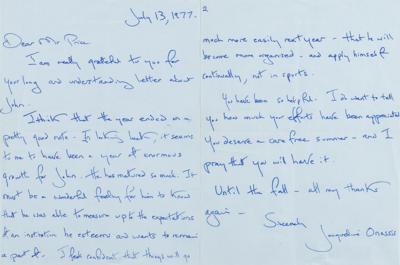 July 13, 1977.
Dear Mr Price
I am really grateful to you for
your long and understanding letter about
John.
I think that the year ended on a
pretty good note. In looking back, it seems
to me to have been a year of enormous
growth for John. He has matured so much. It
must be a wonderful feeling for him to know
that he was able to measure up to the expectations
of an institution he esteems and wants to remain
a part of. I feel confident that things will go
2
much more easily next year - that he will
become more organized - and apply himself
continually, not in spurts.
You have been so helpful. I do want to tell
you how much your efforts have been appreciated
You deserve a care free summer - and I
pray that you will have it.
Until the fall - all my thanks
again -
Sincerely
Jacqueline Onassis